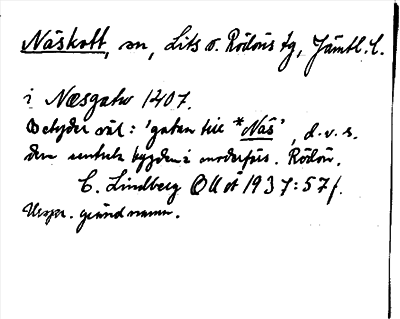 Näskott, sn, Lits o. Rödöns tg, Jämtl. l.
i Næsgatw 1407.
Betyder väl: 'gatan till *Näs', d.v.s.
den centrala bygden i moderförs. Rödön.
C. Lindberg OUÅ 1937:57f.
Urspr. gränd namn.